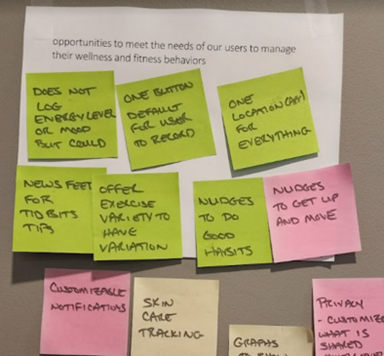 opportunities to meet the needs of our users to manage
their wellness and fitness behaviors
DOES NOT
LOG
ENERGY LEVEL
OR MOOD
BUT COULD
ONE BUTTON
DEFAULT
FOR USER
TO RECORD
ONE
LOCATION (APP)
FOR
EVERYTHING
NEWS FEET
FOR
TIDBITS
TIPS
OFFER
EXERCISE
VARIETY TO
HAVE
VARIATION
NUDGES
TO DO
GOOD
HABITS
NUDGES
TO GET UP
AND MOVE
CUSTOMIZABLE
NOTIFICATIONS
SKIN
CARE
TRACKING
GRAPHS
PRIVACY
- CUSTOMIZE
WHAT IS
SHARED